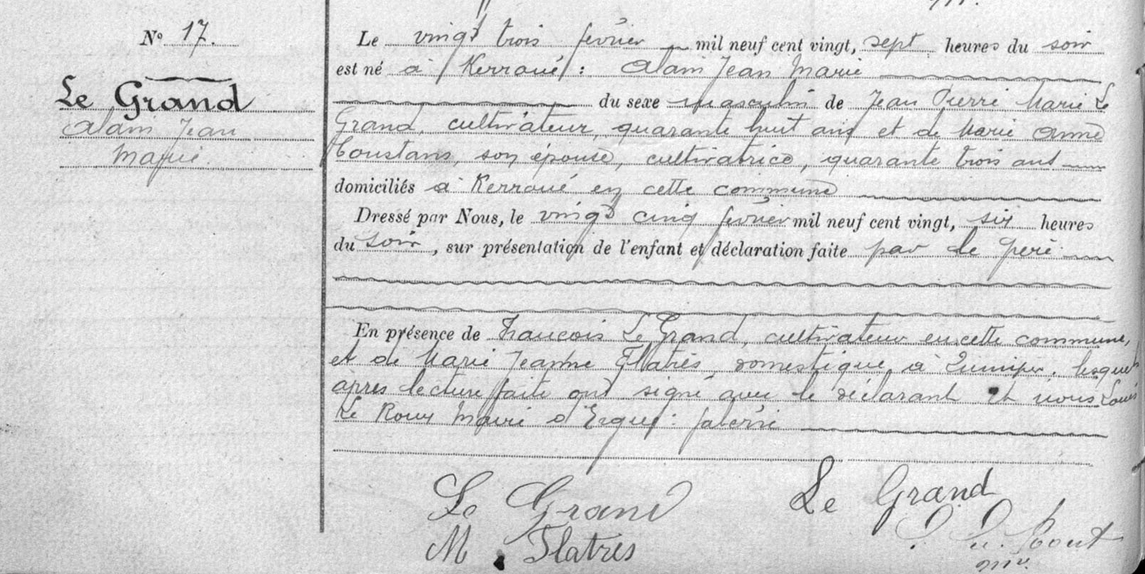 N° 17.
Le Grand
Alain Jean
Marie
Le vingt trois février mil neuf cent vingt, sept heures du soir
est né à Kerroué : Alain Jean Marie
du sexe masculin de Jean Pierre Marie Le
Grand, cultivateur, quarante huit ans et de Marie Anne
Coustans, son épouse, cultivatrice, quarante trois ans
domiciliés à Kerroué en cette commune
Dressé par Nous, le vingt cinq février mil neuf cent vingt, six heures
du soir, sur présentation de l'enfant et déclaration faite par le père
En présence de François Le Grand, cultivateur en cette commune,
et de Marie Jeanne Flatrès, domestique à Quimper, lesquels
après lecture faite ont signé avec le déclarant et nous Louis
Le Roux Maire d'Ergué
Le Grand Le Grand
M. Flatres